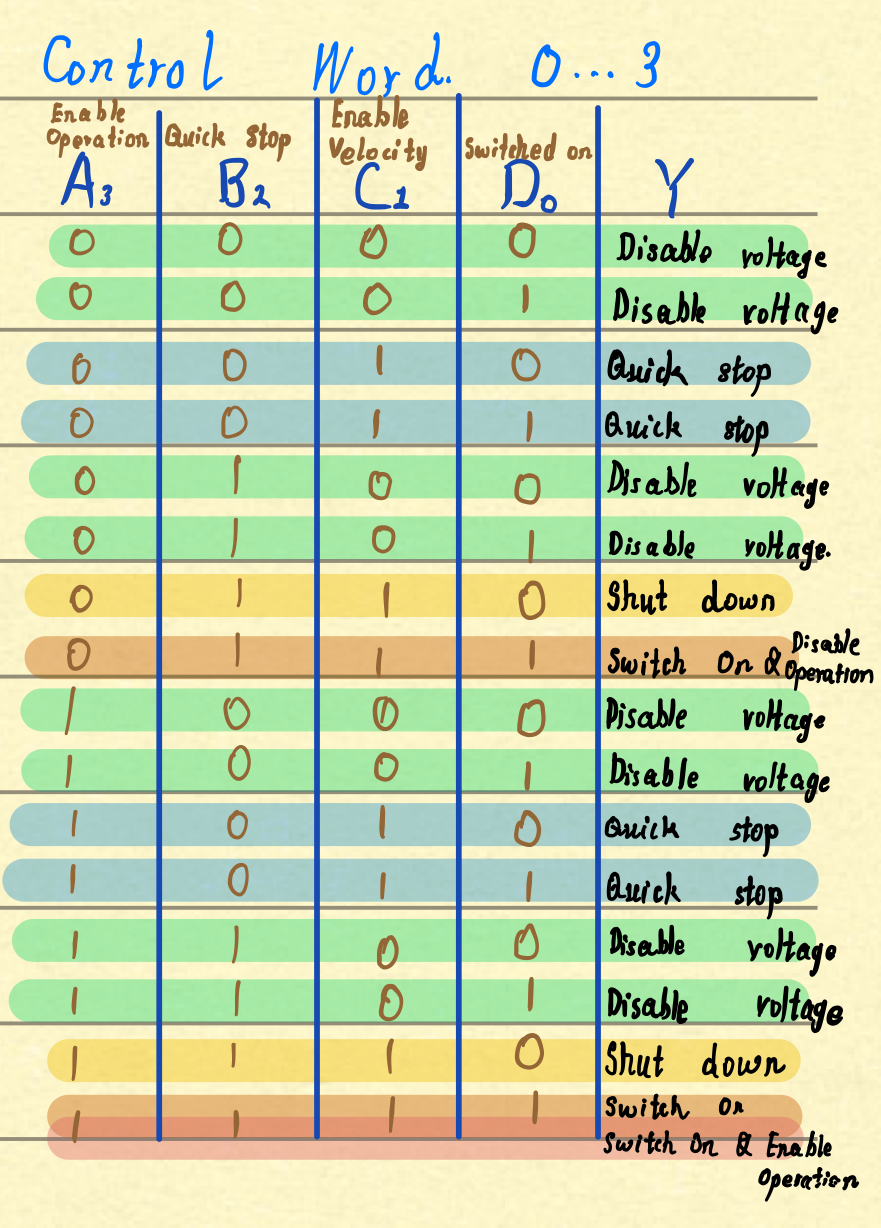 Control Word. 0...3
Enable Operation Quick Stop Enable Velocity Switched on
A3 B2 C1 D0 Y
0 0 0 0 Disable voltage
0 0 0 1 Disable voltage
0 0 1 0 Quick stop
0 0 1 1 Quick stop
0 1 0 0 Disable voltage
0 1 0 1 Disable voltage.
0 1 1 0 Shut down
0 1 1 1 Switch On & Disable Operation
1 0 0 0 Disable voltage
1 0 0 1 Disable voltage
1 0 1 0 Quick stop
1 0 1 1 Quick stop
1 1 0 0 Disable voltage
1 1 0 1 Disable voltage
1 1 1 0 Shut down
1 1 1 1 Switch On
Switch On & Enable
Operation